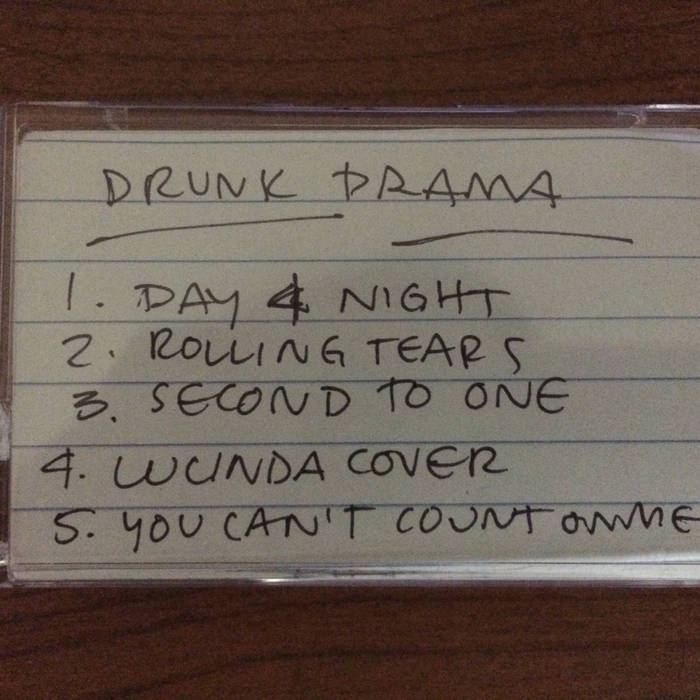 DRUNK DRAMA
1. DAY & NIGHT
2. ROLLING TEARS
3. SECOND TO ONE
4. LUCINDA COVER
5. YOU CAN'T COUNT ON ME